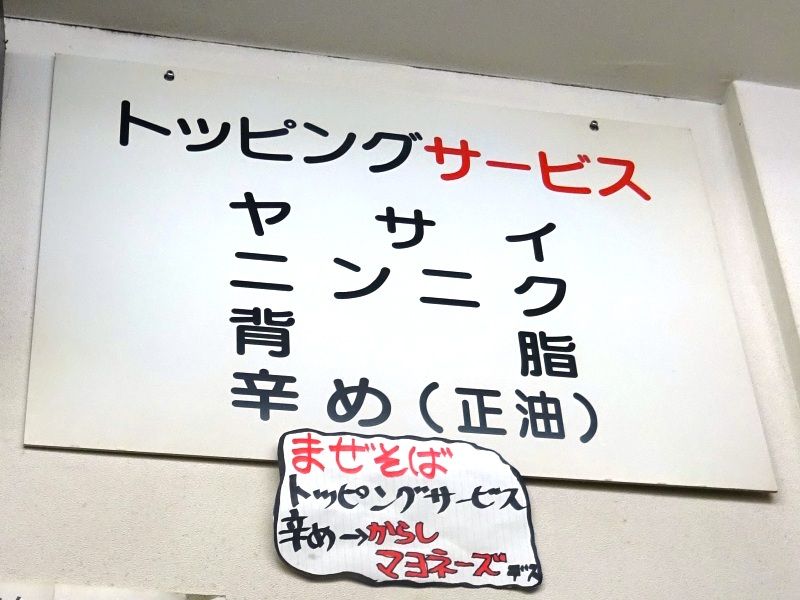 トッピングサービス
ヤサイ
ニンニク
背脂
辛め(正油)
まぜそば
トッピングサービス
辛め→からし
マヨネーズデス